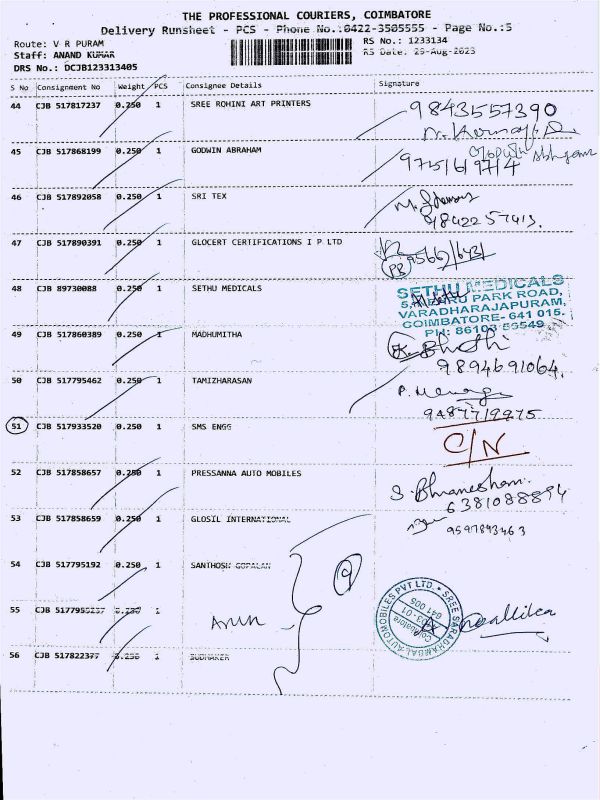 THE PROFESSIONAL COURIERS, COIMBATORE
Delivery Runsheet - PCS - Phone No.:0422-3505555 - Page No.:5
Route: V R PURAM
RS No.: 1233134
Staff: ANAND KUMAR
RS Date: 29-Aug-2023
DRS No.: DCJB123313405
S No Consignment No Weight PCS Consignee Details Signature
44 CJB 517817237 0.250 1 SREE ROHINI ART PRINTERS 9843557390
45 CJB 517868199 0.250 1 GODWIN ABRAHAM
46 CJB 517892058 0.250 1 SRI TEX
9842257413.
47 CJB 517890391 0.250 1 GLOCERT CERTIFICATIONS I P LTD
PB
48 CJB 89730088 0.250 1 SETHU MEDICALS
SETHU MEDICALS
PARK ROAD,
VARADHARAJAPURAM,
COIMBATORE- 641 015.
PH: 86103 56549
49 CJB 517860389 0.250 1 MADHUMITHA
9894691064.
50 CJB 517795462 0.250 1 TAMIZHARASAN
51 CJB 517933520 0.250 1 SMS ENGG C/N
52 CJB 517858657 0.250 1 PRESSANNA AUTO MOBILES
6381088894
53 CJB 517858659 0.250 1 GLOSIL INTERNATIONAL
9597893463
54 CJB 517795192 0.250 1 SANTHOSH GOPALAN
55 CJB 5177955237 0.250 1
Arun
SREE SARADHAMBAL AUTOMOBILES PVT LTD.
Coimbatore
641 005
56 CJB 517822377 0.250 1 SUDHAKER